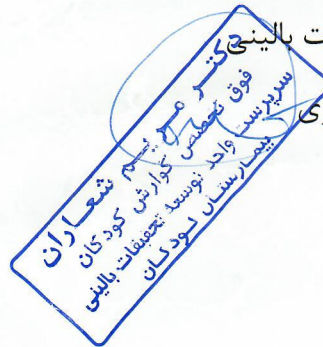 ت بالینی
ی
دکتر مریم شعاران
فوق تخصص گوارش کودکان
سرپرست واحد توسعه تحقیقات بالینی
بیمارستان کودکان